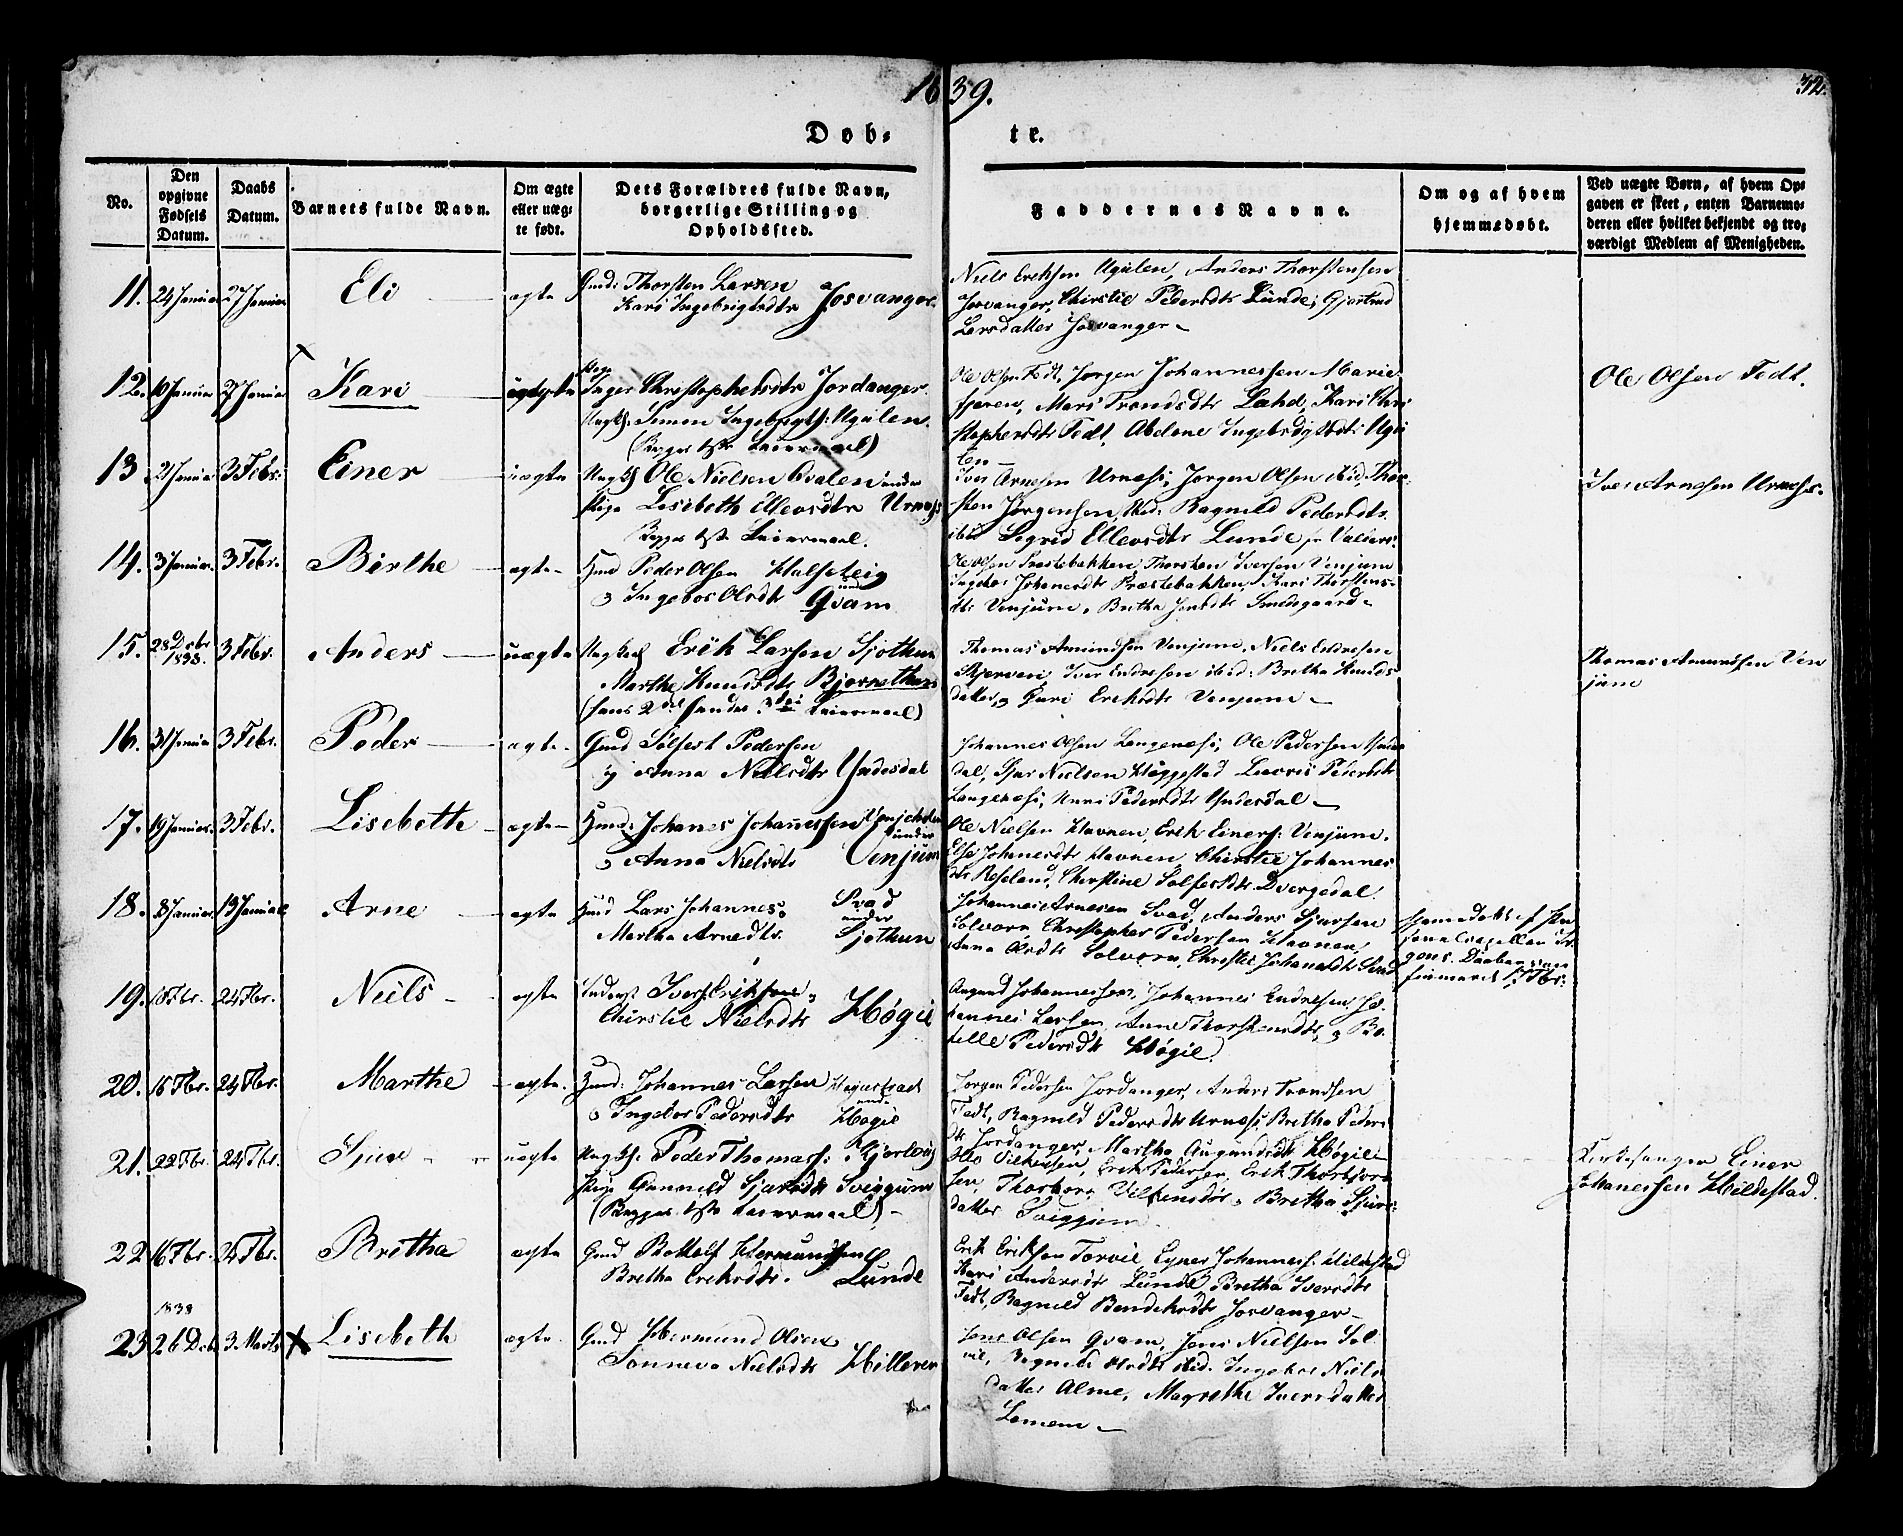 1839.
32.
Døb-
te.
No.
Den opgivne Fødsels Datum.
Daabs Datum.
Barnets fulde Navn.
Om ægte eller uægte født.
Dets Forældres fulde Navn, borgerlige Stilling og Opholdssted.
Faddernes Navne.
Om og af hvem hjemmedøbt.
Ved uægte Børn, af hvem Opgaven er skeet, enten Barnemoderen eller hvilket bekjendt og troværdigt Medlem af Menigheden.
11. 24 Januar 27 Januar Eli ægte Gmd: Thorsten Larsen
Kari Ingebrigtsdtr Josvanger
Niels Eriksen Ugulen, Anders Thorstensen
Josvanger, Chirstie Pedersdtr Lunde, Gjertrud
Larsdatter Josvanger
12. 10 Januar 27 Januar Kari uægte
Inger Christophersdtr Jordanger
Ungk: Simon Ingebrigts: Ugulen
(Begges 1ste Leiermaal)
Ole Olsen Fedt, Jørgen Johannessen Marie
fjæren, Mari Trondsdtr Lahd, Kari Chri
stophersdtr Fedt, Abelone Ingebrigtsdtr Ugu
len
Ole Olsen Fedt.
13 21 Januar 3 Febr: Einer uægte Ungk: Ole Nielsen Qvalen under
Pige Lisebeth Ellevsdtr Urnæs
Begges 1ste Leiermaal.
Iver Arnesen Urnæs, Jørgen Olsen ibid, Thor
sten Jørgensen ibid: Ragnild Pedersdtr
ibid Sigrid Ellevsdtr Lunde
Iver Arnesen Urnæs.
14. 3 Januar. 3 Febr. Birthe ægte Hmd Peder Olsen Halsteig
og Ingebor Olsdtr under Qvam
Ole Olsen Præstebakken, Thorsten Iversen Venjum
Ingebor Johanesdtr Præstebakken, Kari Thorstens
dtr Venjum, Britha Jensdtr Smedgaard
15. 28 Decbr 1838. 3 Febr. Anders uægte Ungkarl Erik Larsen Sjøthun
Marthe Knudsdtr Bjørnethun
(hans 2det hendes 3die Leiermaal)
Thomas Amundsen Venjum, Niels Endresen
Skjerven, Iver Endresen ibid: Bretha Knuds
datter, og Guri Eriksdtr Venjum
Thomas Amundsen Ven
jum
16. 31 Januar 3 Febr. Peder ægte Gmd Solfest Pedersen
og Anna Nielsdtr Yndesdal
Johannes Olsen Langenæs, Ole Pedersen Yndes
dal, Sjur Nielsen Høggestad Lavris Pedersdtr
Langenæs, Kari Pedersdtr Yndesdal
17. 19 Januar. 3 Febr. Lisebeth ægte Hmd: Johanes Johanessen
under
og Anna Nielsdtr Venjum
Ole Nielsen Havnen, Erik Einers: Venjum,
Else Johanesdtr Havnen, Chirstie Johannes
dtr Røseland, Chirstine Solfestdtr Dvergedal
18. 8 Januar. 13 Januar Arne ægte Hmd Lars Johannes: Svad
under
Martha Arnedtr. Sjøthun
Johannes Arnesen Svad, Anders Sjursen
Solvorn, Christopher Pedersen Havnen,
Anna Olsdtr Solvorn, Chirstie Johanesdtr Svad
19. 18 Fbr. 24 Fbr. Niels ægte Inderst Iver Eriksen og
Chirstie Nielsdtr Høgie
Augund Johannessen, Johannes Endresen, Jo
hannes Larsen, Anne Thorstensdtr, og Bo
tille Pedersdtr Høgie
20. 16 Fbr. 24 Fbr. Marthe ægte. Hmd: Johannes Larsen
under
og Ingebor Pedersdtr Høgie
Jørgen Pedersen Jordanger, Anders Trondsen
Fedt, Ragnild Pedersdtr Urnæs, Bretha Peders
dtr Jordanger, Martha Augundsdtr Høgie
21. 22 Fbr. 24 Fbr. Sjur uægte Ungk: Peder Thomas: Kjørlvig
Pige Gunnild Sjursdtr Sviggum
(Begges 1ste Leiermaal)
Erik Pedersen, Erik Thorbjørn
sen, Thorborn Villumsdtr, Bretha Sjurs
datter Sviggum
Kirkesanger Einer
Johanessen Hildestad.
22 16 Fbr. 24 Fbr. Britha ægte Gmd Bottolf Hermundsen
Bretha Eriksdtr. Lunde
Erik Eriksen Torvie, Eyner Johanness: Hildestad
Kari Andersdtr Lunde, Bretha Iversdtr
Fedt, Ragnild Bendiksdtr Josvanger
1838
23 26 Dcb. 3 Marts Lisebeth ægte. Gmd Hermund Olsen
Sonneva Nielsdtr Hilleren
Jens Olsen Qvam, Jens Nielsen Sol
vie, Ragnild Olsdtr ibid. Ingebor Niels
datter Alme, Magrethe Iversdatter
Lomem